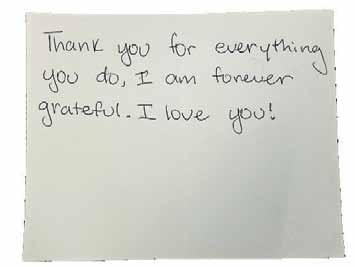 Thank you for everything
you do, I am forever
grateful. I love you!